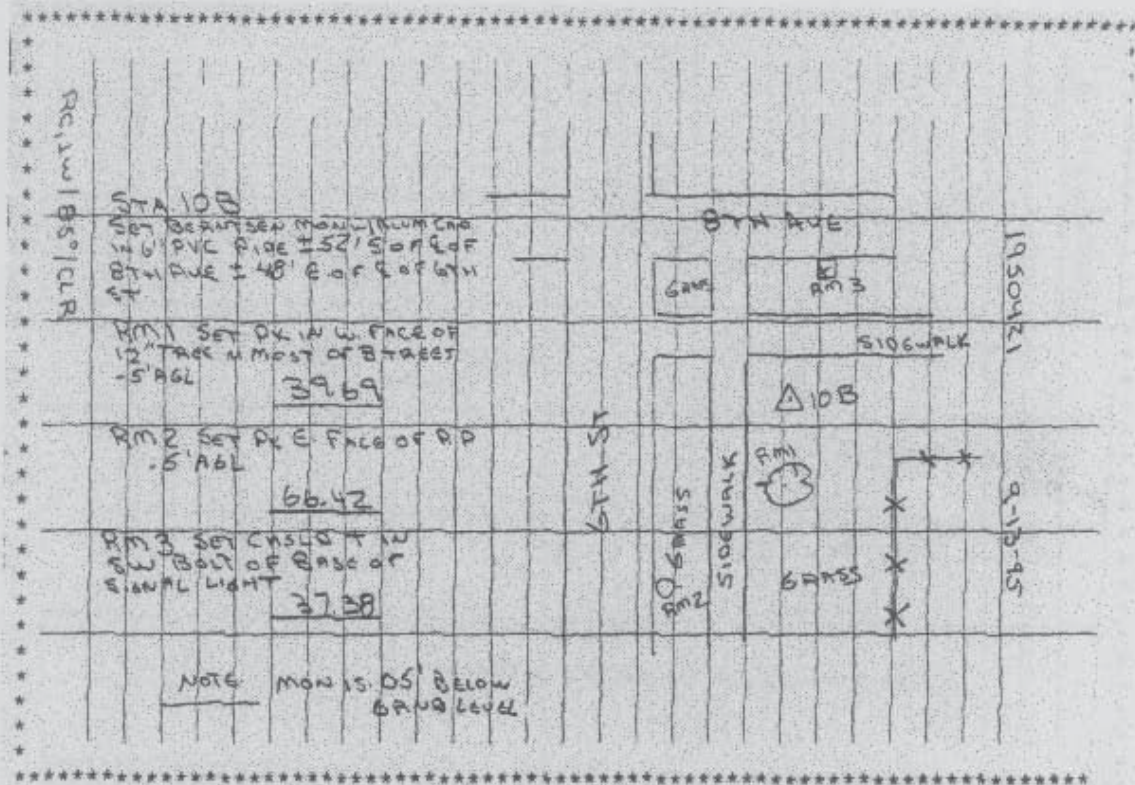 RC, JW / 85° / CLR
STA 10B
SET BERNTSEN MON W/ALUM CAP
IN 6" PVC PIPE ±52' S OF ℄ OF
8TH AVE ± 48' E OF ℄ OF 6TH
ST
RM1 SET PK IN W. FACE OF
12" TREE N MOST OF 8 TREES
-.5' AGL
39.69
RM2 SET PK E. FACE OF P.P
-.5' AGL
66.42
RM3 SET CHSLD + IN
SW BOLT OF BASE OF
SIGNAL LIGHT
37.38
NOTE MON IS .05' BELOW
GRND LEVEL
8TH AVE
GRASS
RM3
SIDEWALK
△10B
6TH ST
RM1
SIDEWALK
GRASS
RM2
GRASS
1950421
9-13-95